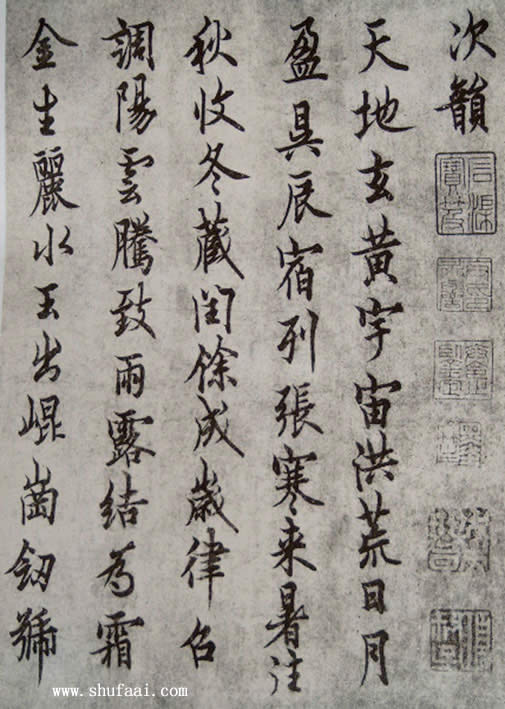 次韻
天地玄黃宇宙洪荒日月
盈昃辰宿列張寒来暑往
秋收冬藏閏餘成歲律召
調陽雲騰致雨露結為霜
金生麗水玉出崐崗劒號
www.shufaai.com